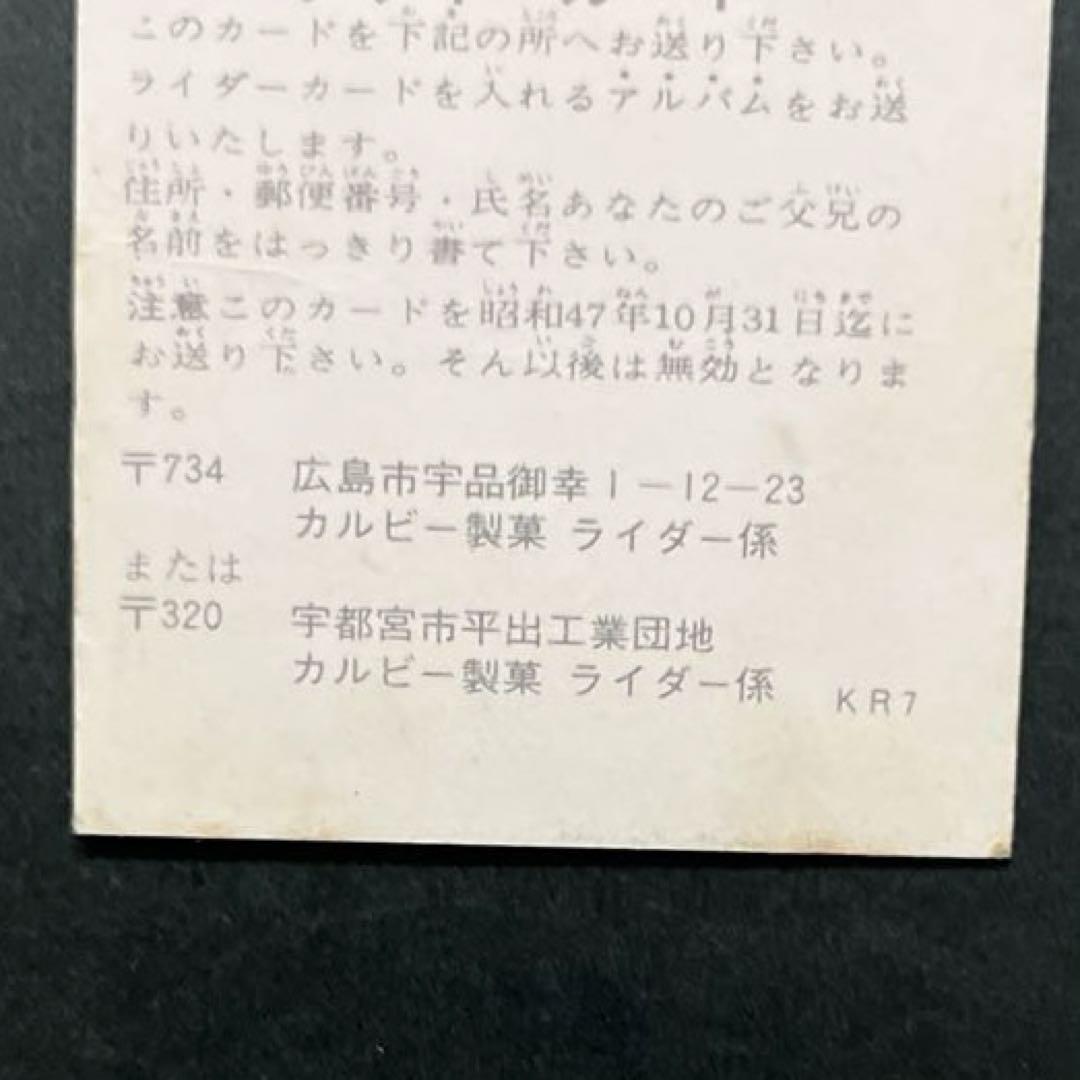 このカードを下記の所へお送り下さい。
ライダーカードを入れるアルバムをお送
りいたします。
住所・郵便番号・氏名あなたのご父兄の
名前をはっきり書て下さい。
注意このカードを昭和47年10月31日迄に
お送り下さい。そん以後は無効となりま
す。
〒734 広島市宇品御幸1-12-23
カルビー製菓 ライダー係
または
〒320 宇都宮市平出工業団地
カルビー製菓 ライダー係
KR7